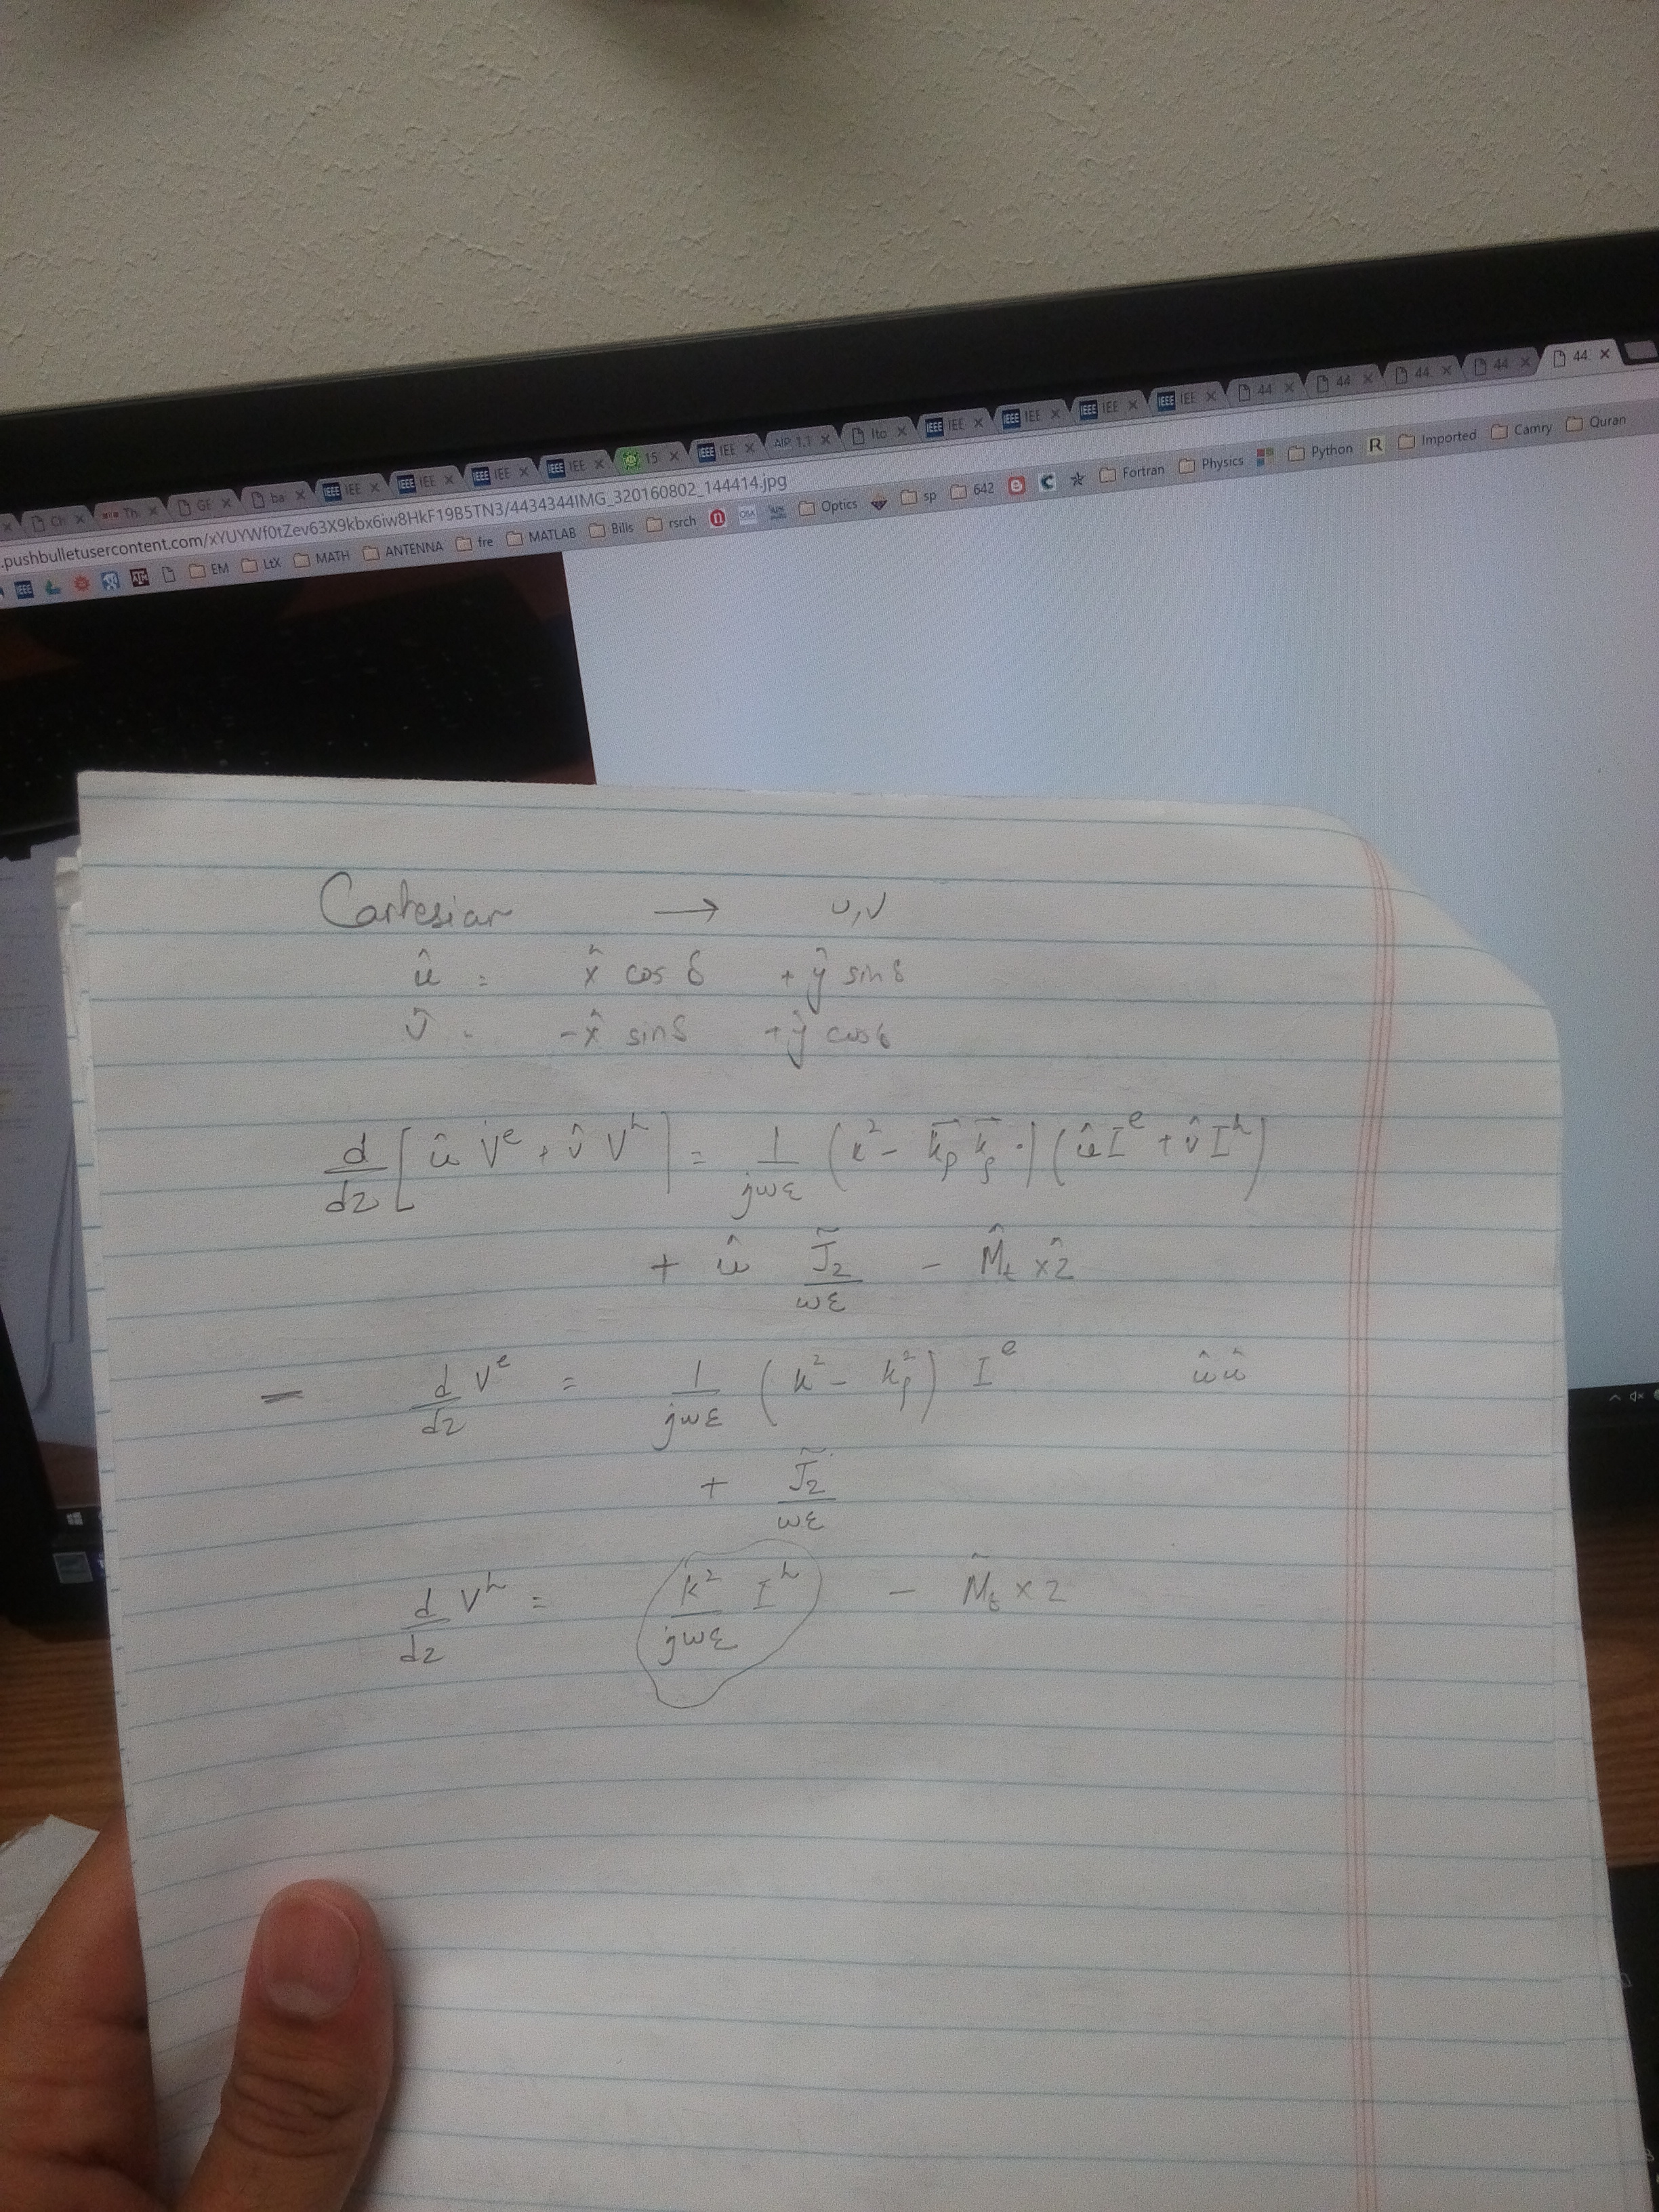 Ch × Th × GE × ba × IEE × IEE × IEE × IEE × 15 × IEE × AIP 1.1 × Ito × IEE × IEE × IEE × IEE × 44 × 44 × 44 × 44 × 44 ×
.pushbulletusercontent.com/xYUYWf0tZev63X9kbx6iw8HkF19B5TN3/4434344IMG_320160802_144414.jpg
IEEE EM LtX MATH ANTENNA fre MATLAB Bills rsrch n OSA Optics sp 642 B C Fortran Physics Python R Imported Camry Quran
Cartesian → u,v
û = x̂ cos δ + ŷ sin δ
v̂ = -x̂ sin δ + ŷ cos δ
d/dz [û Vᵉ + v̂ Vʰ] = 1/jωε (k² - k⃗ρ k⃗ρ ·) (û Iᵉ + v̂ Iʰ)
+ û J̃z/ωε - M̂t × ẑ
- d/dz Vᵉ = 1/jωε (k² - kρ²) Iᵉ ûû
+ J̃z/ωε
d/dz Vʰ = k²/jωε Iʰ - M̃t × z